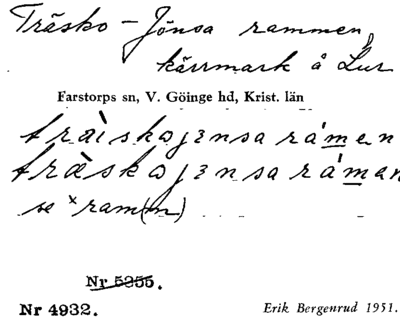 Träsko-Jönsa rammen,
kärrmark å Lur
Farstorps sn, V. Göinge hd, Krist. län
träiskojensa ramen
träskojensa raman
se ˣram(m)
Nr 5255.
Nr 4932.
Erik Bergenrud 1951.